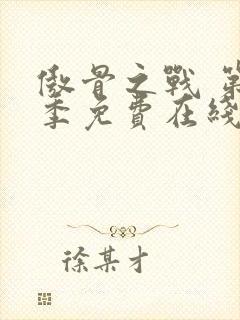 傲骨之戰 第
季免費在綫
徐某才